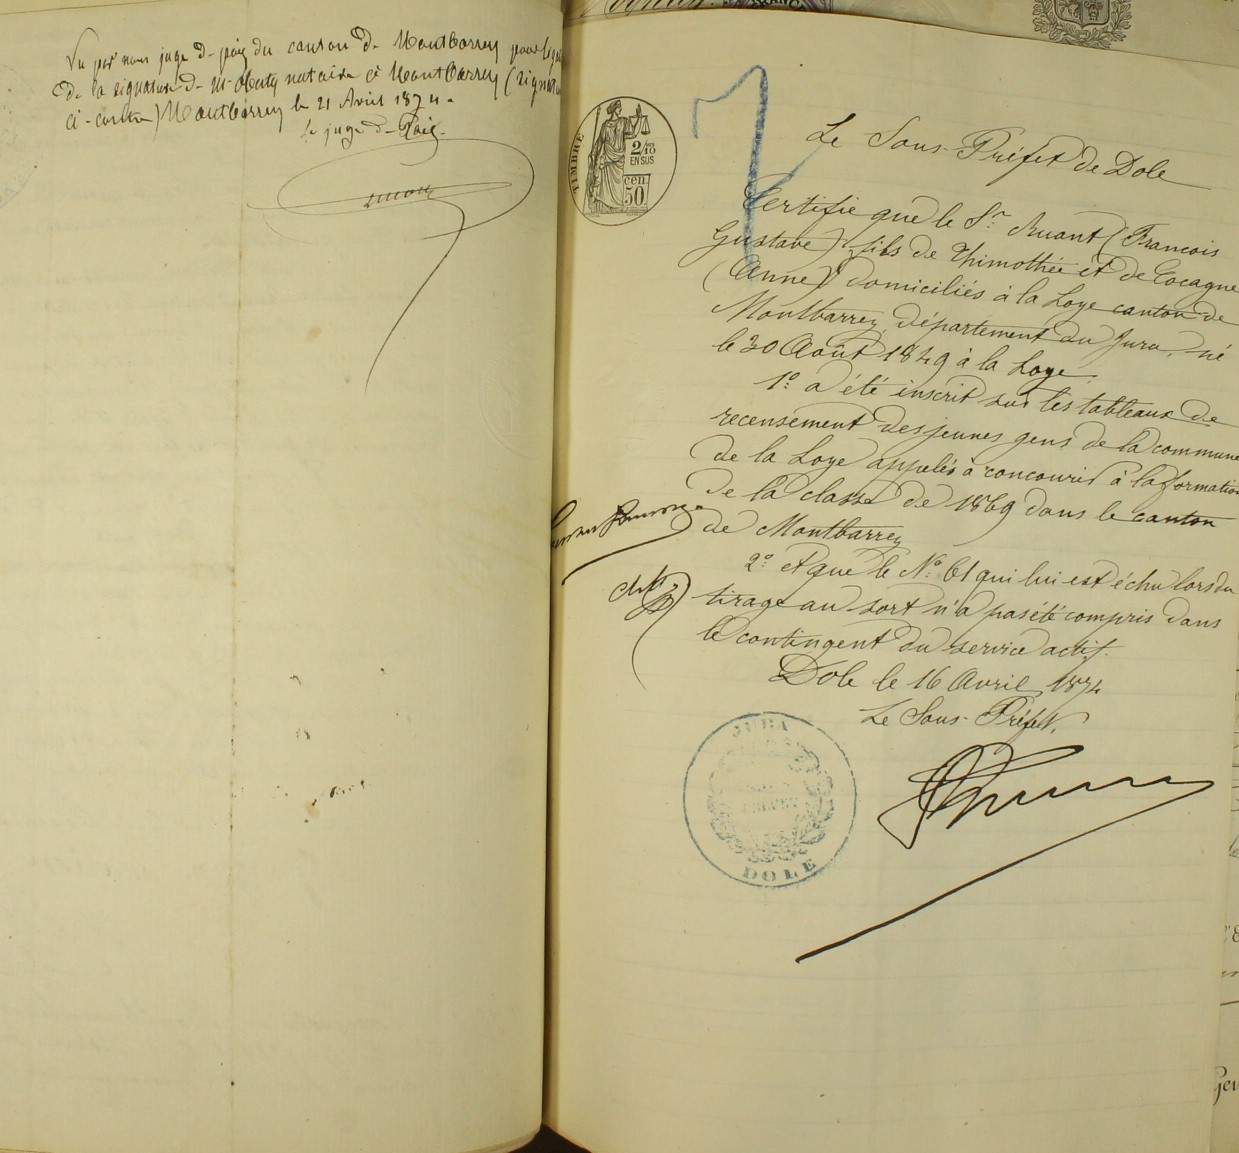 Vu par nous juge de paix du canton de Montbarrey pour légal
de la signature de Me notaire à Montbarrey (signature
ci-contre) Montbarrey le 21 Avril 1874.
Le juge de Paix
TIMBRE
2/10
EN SUS
50 cen
Le Sous-Préfet de Dole
Certifie que le Sr. Ruant (François
Gustave) fils de Thimothée et de Cocagne
(Anne) domiciliés à la Loye canton de
Montbarrey, département du Jura, né
le 30 Août 1849 à la Loye
1° a été inscrit sur les tableaux de
recensement des jeunes gens de la commune
de la Loye appelés à concourir à la formation
de la classe de 1869 dans le canton
de Montbarrey
2° et que le No. 61 qui lui est échu lors du
tirage au sort n'a pas été compris dans
le contingent du service actif.
Dole le 16 Avril 1874
Le Sous-Préfet,
JURA
DOLE